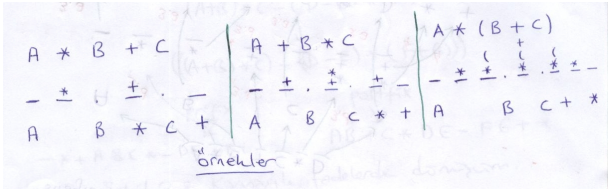 A * B + C
- * . + . -
A B * C +
A + B * C
- + . * . + -
A B C * +
A * ( B + C )
+
( ( (
- * * . * . * -
A B C + *
örnekler